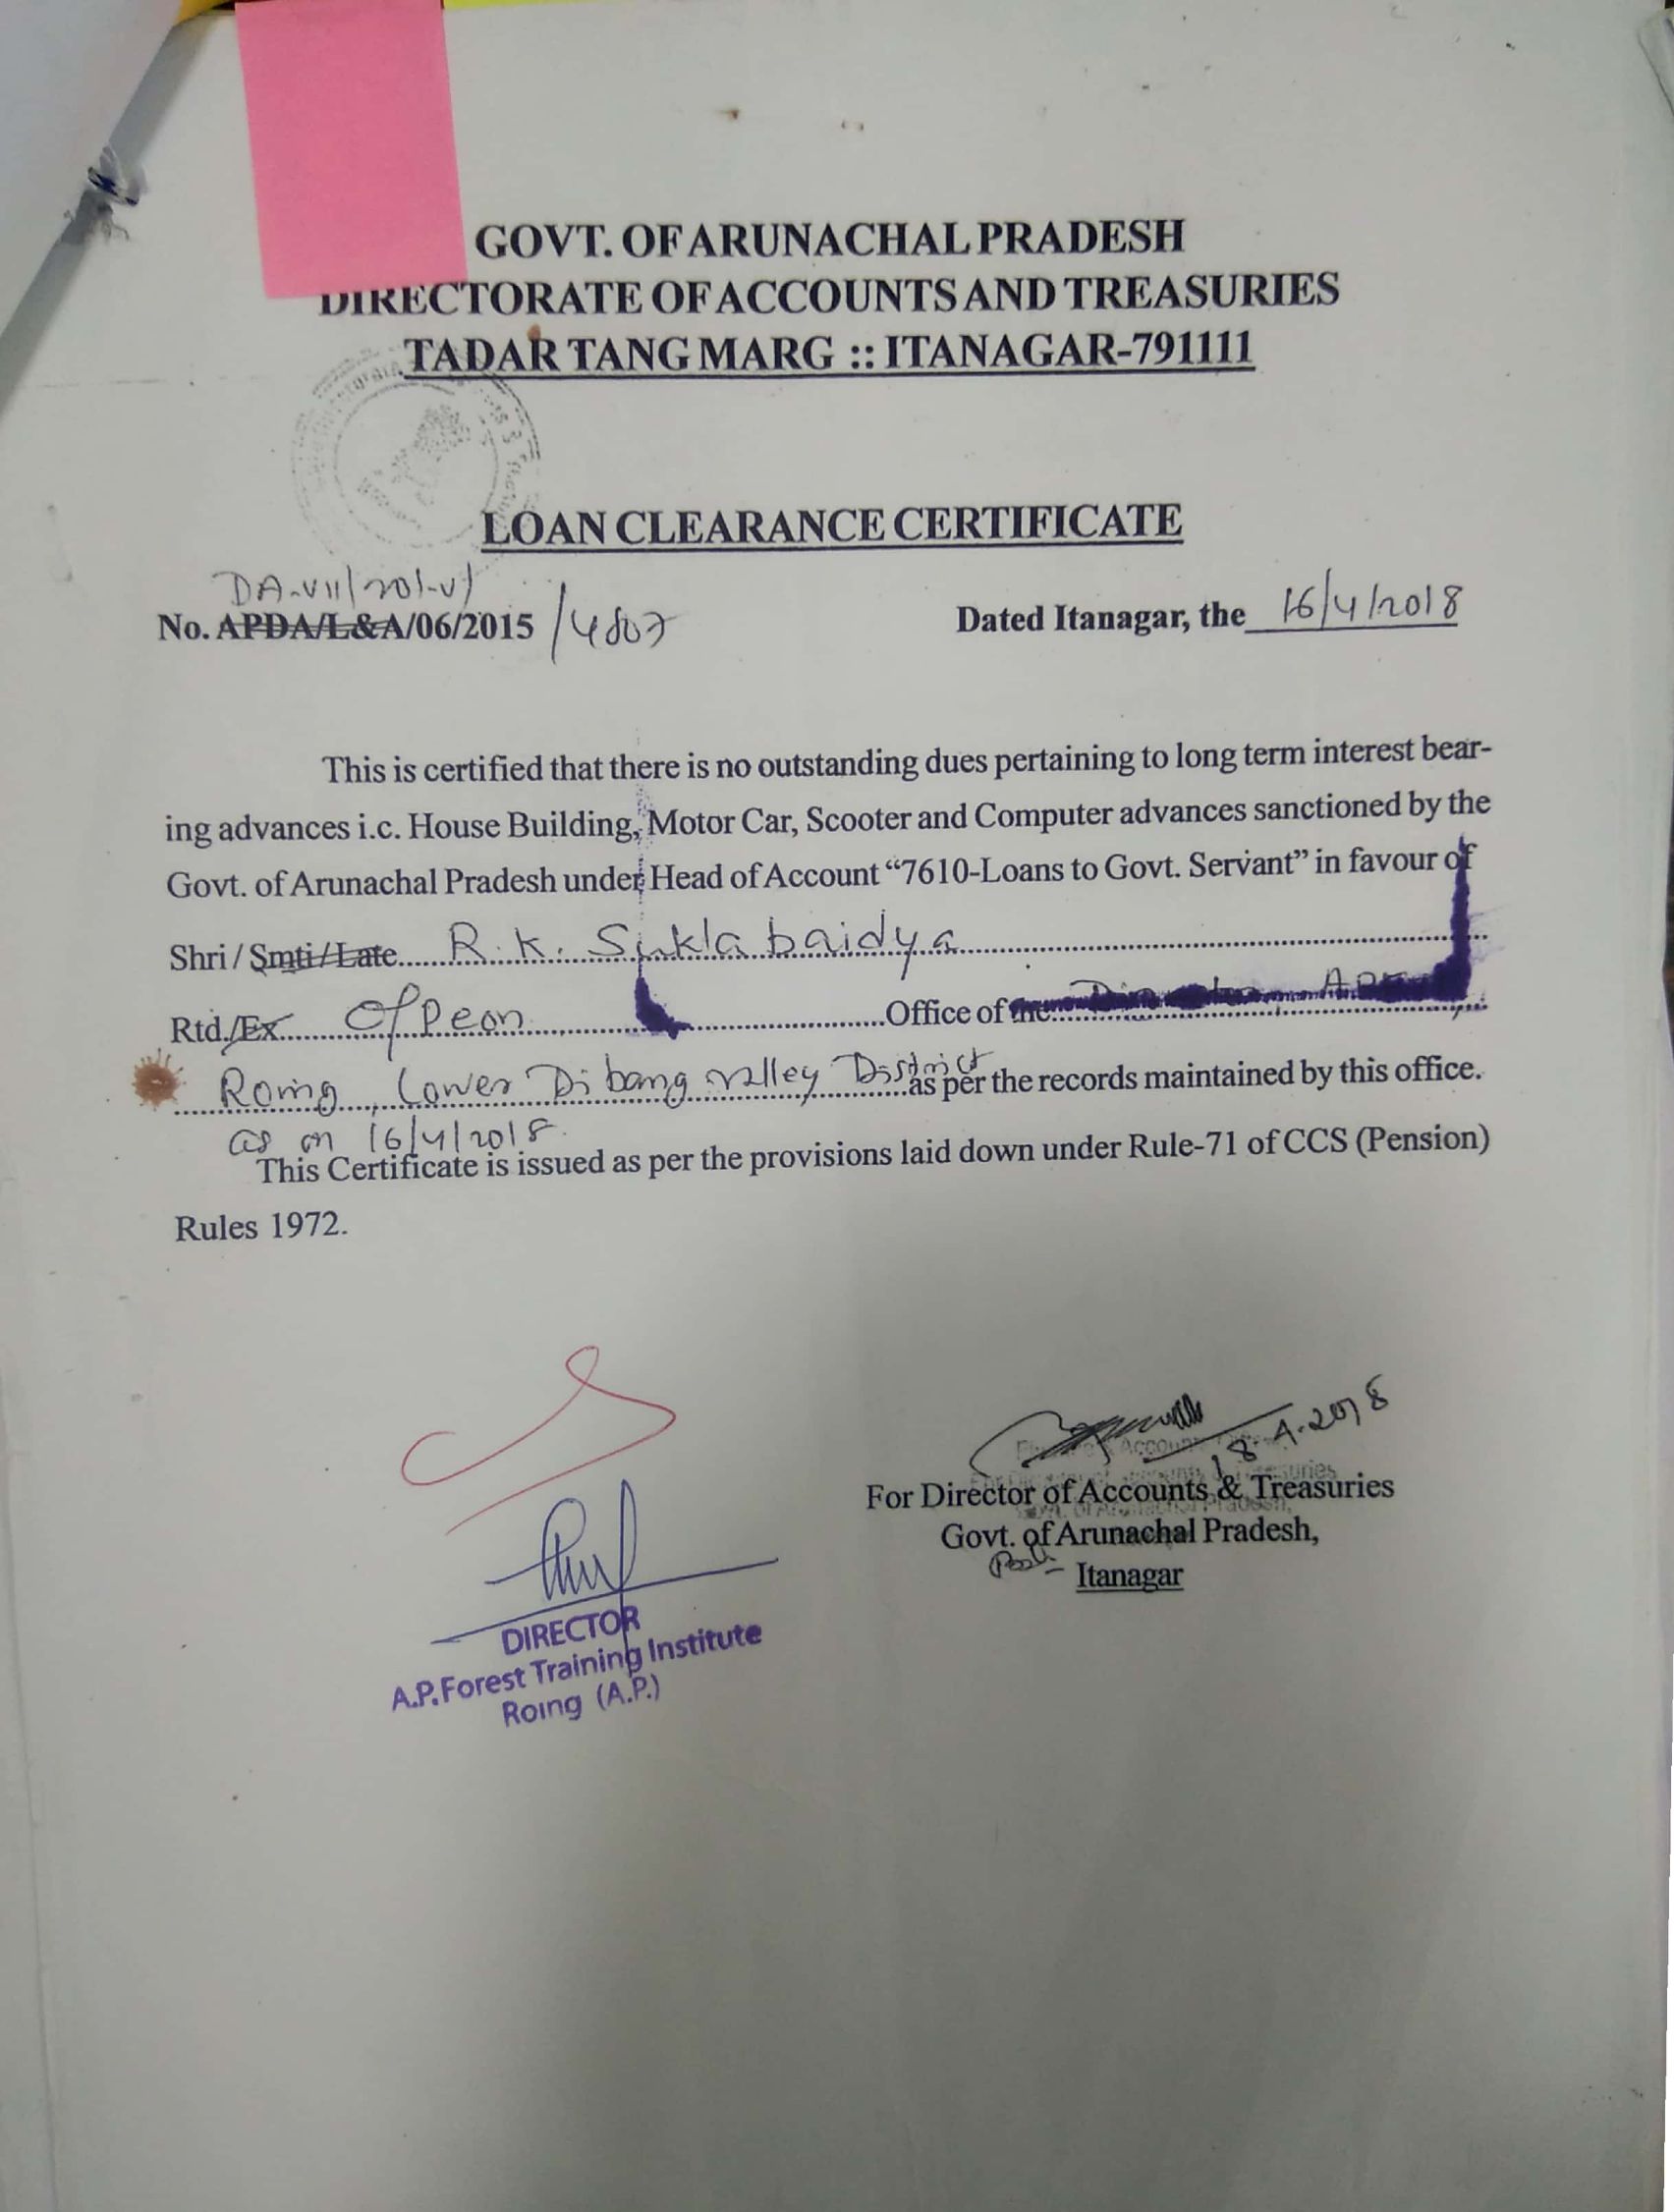 GOVT. OF ARUNACHAL PRADESH
DIRECTORATE OF ACCOUNTS AND TREASURIES
TADAR TANG MARG :: ITANAGAR-791111
LOAN CLEARANCE CERTIFICATE
DA-VII/201-V/
No. APDA/L&A/06/2015 /4807
Dated Itanagar, the 16/4/2018
This is certified that there is no outstanding dues pertaining to long term interest bear-
ing advances i.c. House Building, Motor Car, Scooter and Computer advances sanctioned by the
Govt. of Arunachal Pradesh under Head of Account “7610-Loans to Govt. Servant” in favour of
Shri / Smti / Late R. K. Suklabaidya
Rtd./Ex Peon Office of the
Roing, Lower Dibang valley District as per the records maintained by this office.
as on 16/4/2018.
This Certificate is issued as per the provisions laid down under Rule-71 of CCS (Pension)
Rules 1972.
18.4.2018
For Director of Accounts & Treasuries
Govt. of Arunachal Pradesh,
Itanagar
DIRECTOR
A.P. Forest Training Institute
Roing (A.P.)